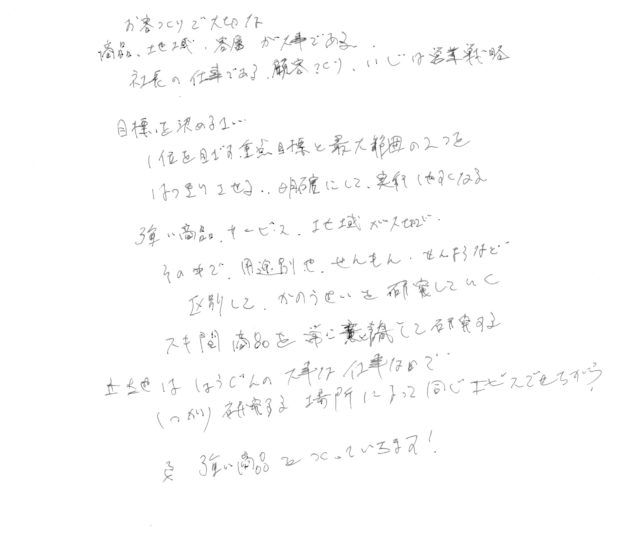 お客づくりで大切な
商品、地域、客層が大事である。
社長の仕事である、顧客づくり、いじは営業戦略
目標を決める
1位を目ざす重点目標と最大範囲の2つを
はっきりさせる、明確にして、実行しやすくなる
強い商品、サービス、地域が大切で、
その中で、用途別や、せんもん、など
区別して、かのうせいを研究していく
スキ間商品を常に意識して研究する
立地はほうじんの大事な仕事なので
(つかり)研究する場所によって同じサービスでもちがう
強い商品をつくっていきます!